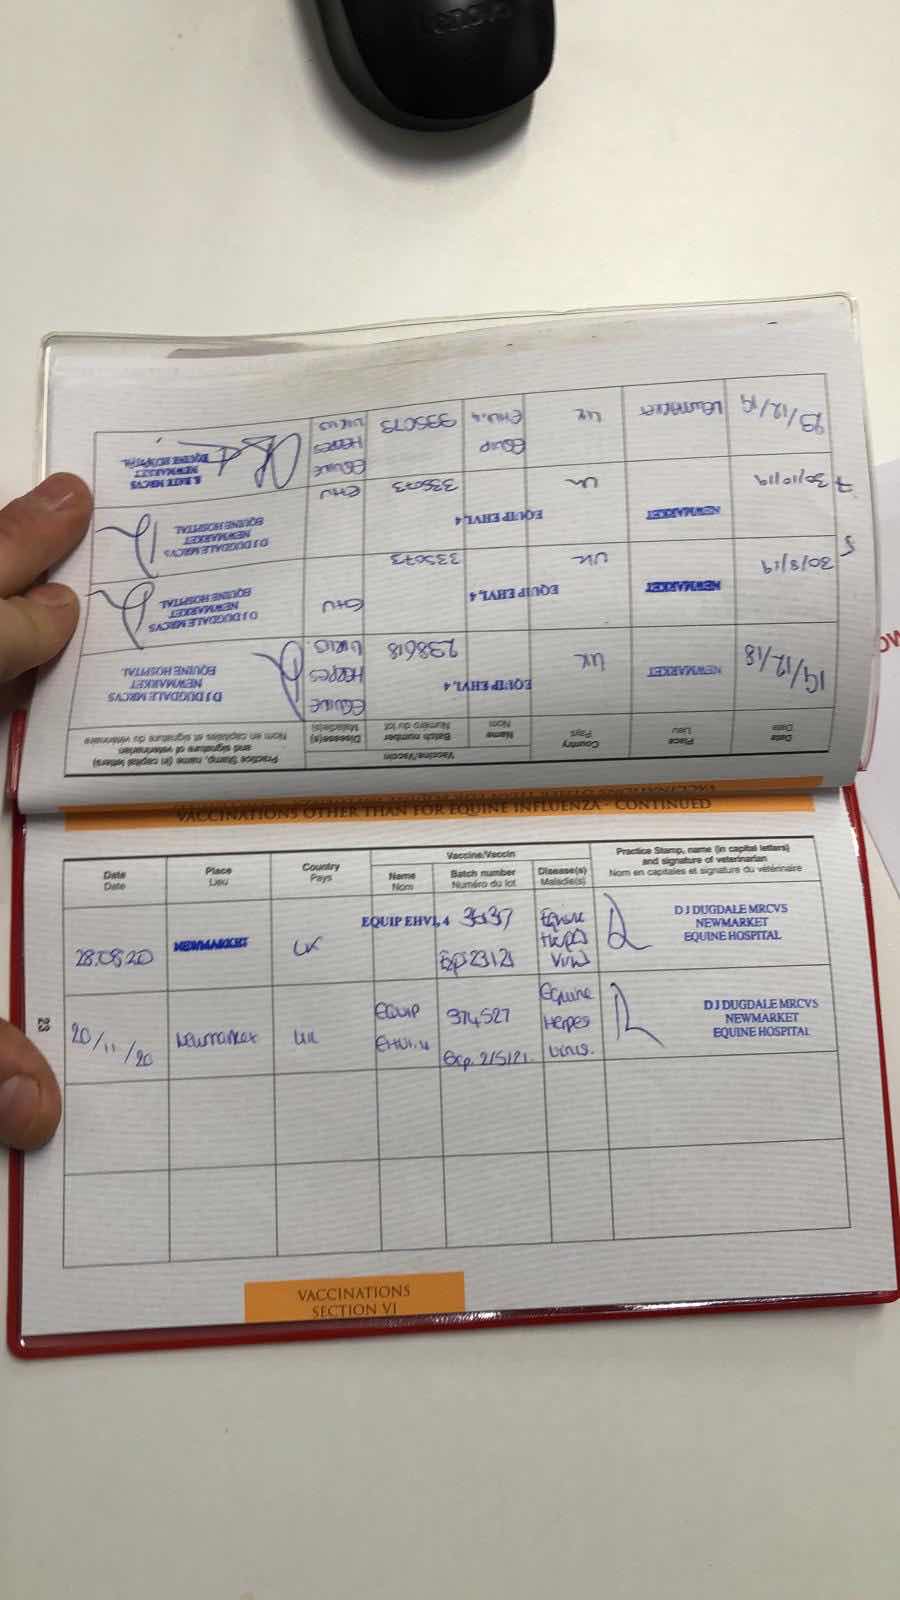 lenovo
Date
Date
Place
Lieu
Country
Pays
Vaccine/Vaccin
Name
Nom
Batch number
Numéro du lot
Disease(s)
Maladie(s)
Practice Stamp, name (in capital letters)
and signature of veterinarian
Nom en capitales et signature du vétérinaire
19/12/18
NEWMARKET
UK
EQUIP EHV1,4
238618
EQUINE
HERPES
VIRUS.
D J DUGDALE MRCVS
NEWMARKET
EQUINE HOSPITAL
30/8/19
5
NEWMARKET
UK
EQUIP EHV1,4
335073
EHV
D J DUGDALE MRCVS
NEWMARKET
EQUINE HOSPITAL
30/10/19
7
NEWMARKET
UK
EQUIP EHV1,4
335073
EHV
D J DUGDALE MRCVS
NEWMARKET
EQUINE HOSPITAL
23/12/19
NEWMARKET
UK
EQUIP
EHV1,4
335073
EQUINE
HERPES
VIRUS
MRCVS
NEWMARKET
EQUINE HOSPITAL
VACCINATIONS OTHER THAN FOR EQUINE INFLUENZA - CONTINUED
Date
Date
Place
Lieu
Country
Pays
Vaccine/Vaccin
Name
Nom
Batch number
Numéro du lot
Disease(s)
Maladie(s)
Practice Stamp, name (in capital letters)
and signature of veterinarian
Nom en capitales et signature du vétérinaire
28.08.20
NEWMARKET
UK
EQUIP EHV1,4
Exp 23.1.21
Equine
Herpes
Virus
D J DUGDALE MRCVS
NEWMARKET
EQUINE HOSPITAL
20/11/20
Newmarket
UK
EQUIP
EHV1.4
374527
Exp. 2/5/21.
Equine
Herpes
Virus.
D J DUGDALE MRCVS
NEWMARKET
EQUINE HOSPITAL
23
VACCINATIONS
SECTION VI